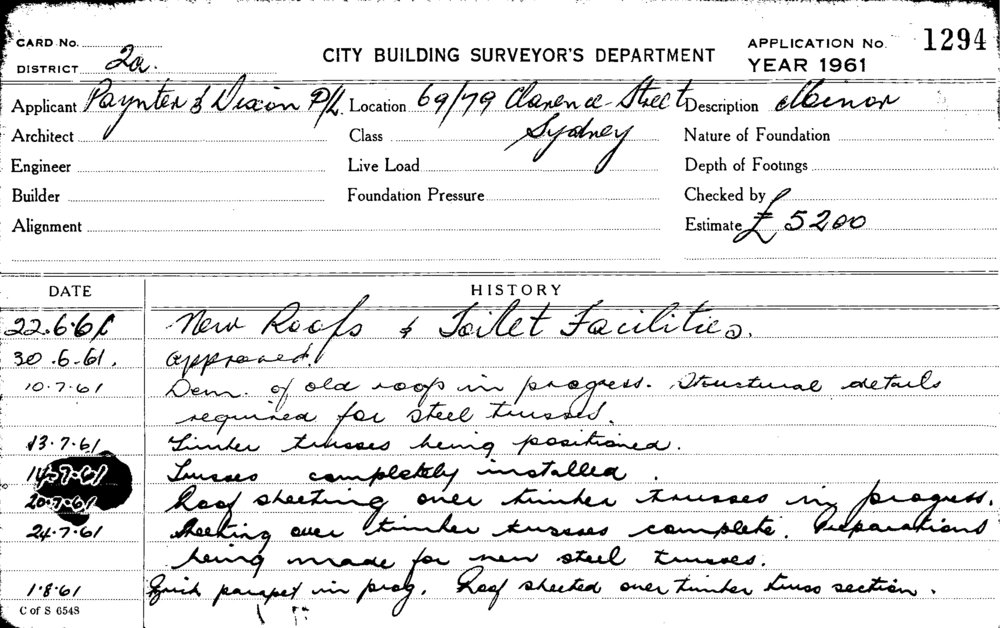 CARD No.
DISTRICT 2a.
CITY BUILDING SURVEYOR'S DEPARTMENT
APPLICATION No. 1294
YEAR 1961
Applicant Paynter & Dixon P/L. Location 69/79 Clarence Street Description Minor
Architect Class Sydney Nature of Foundation
Engineer Live Load Depth of Footings
Builder Foundation Pressure Checked by
Alignment Estimate £5200
DATE HISTORY
22.6.61 New Roofs & Toilet Facilities.
30.6.61. Approved.
10.7.61 Dem. of old roof in progress. Structural details
required for steel trusses.
13.7.61 Timber trusses being positioned.
14.7.61 Trusses completely installed.
20.7.61 Roof sheeting over timber trusses in progress.
24.7.61 Sheeting over timber trusses complete. Preparations
being made for new steel trusses.
1.8.61 Brick parapet in prog. Roof sheeted over timber truss section.
C of S 6548